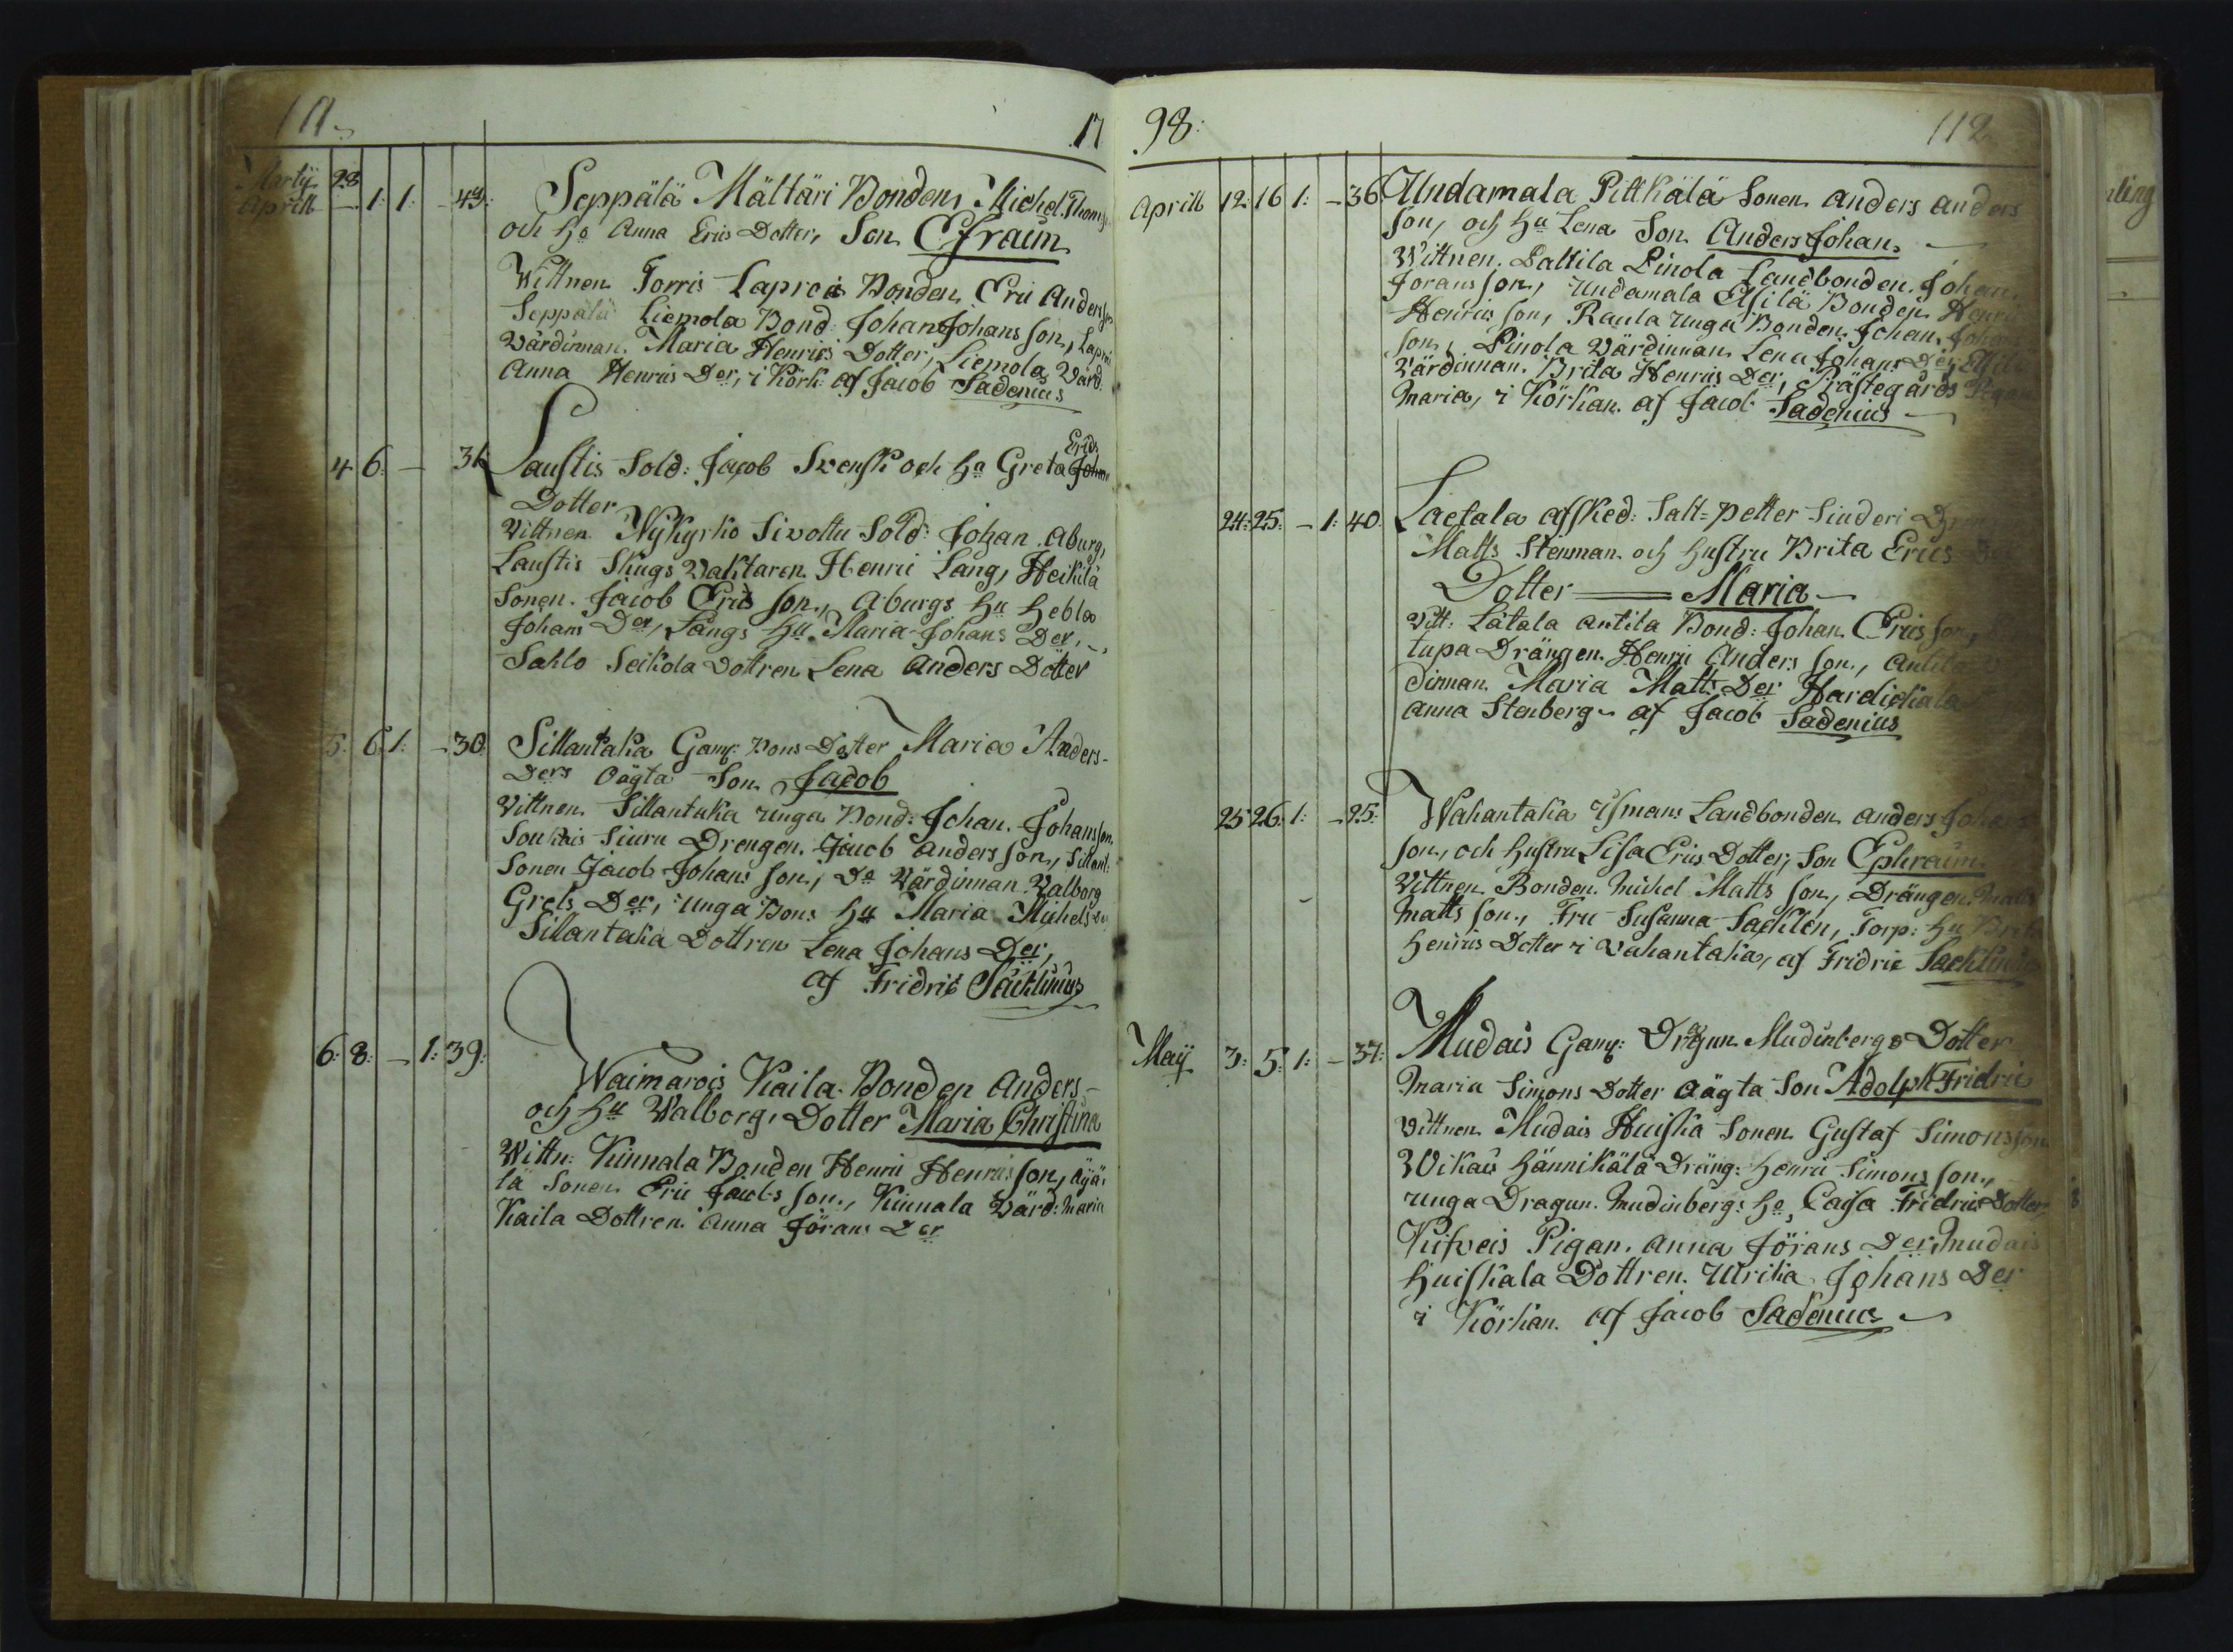 111.
17
Martij 28
Aprill — 1: 1: — 43: Seppälä Mältäri Bonden, Michel Thoms
och ha Anna Erics Dotter, Son Efraim
Wittnen Torris Laprois Bonden Eric Anders son
Seppälä Liemola Bond: Johan Johans son, Laprois
Värdinnan Maria Henrics Dotter, Liemola Värd:
Anna Henrics Der, i Körk: af Jacob Sadenius
4 6: — 31 Laustis Sold: Jacob Svensk och ha Greta Erics
Dotter
Vittnen Nykyrko Sivoltu Sold: Johan Aburg,
Laustis Skugs Vaktaren Henric Lang, Heikilä
Sonen Jacob Erics son, Aburgs hu Hebla
Johans Der, Langs Hu Maria Johans Der,
Sahlo Seikola Dottren Lena Anders Dotter
5: 6 1: — 30: Sillantaka Gamb: Bons Dotter Maria Anders-
Ders Oägta Son Jacob
Vittnen Sillantaka unga Bond: Johan Johansson,
Soukais Siuru Drengen Jacob Anders son, Sillant:
Sonen Jacob Johans son, Do Värdinnan Valborg
Grels Der, Unga Bons Hu Maria Michels Der
Sillantaka Dottren Lena Johans Der,
af Fridric Säcklinius
6: 8: — 1: 39: Waimarois Kaila Bonden Anders-
och Hu Walborg, Dotter Maria Christina
Wittn: Kinnala Bonden Henric Henrics son, Äyä-
lä Sonen Eric Jacobs son, Kinnala Värd: Maria
Kaila Dottren Anna Jörans Der
98:
112
Aprill 12 16 1: — 36 Undamala Pittkälä Sonen Anders Anders
son, och Hu Lena Son Anders Johan.
Wittnen. Paltila Pinola Landbonden Johan
Jorans son, Undamala Esilä Bonden
Henrics son, Raula Unga Bonden Johan Johans
son, Pinola Värdinnan Lena Johans Der,
Värdinnan Brita Henrics Der, Prästegårds Pigan
Maria, i Körkan af Jacob Sadenius
24: 25: — 1: 40: Laetala afsked: Salt-petter Siuderi
Matts Stenman och hustru Brita Erics
Dotter — Maria —
Vitt: Lätala Antila Bond: Johan Erics son,
tupa Drängen Henric Anders son, Antila
dinnan Maria Matts Der Hardickala
Anna Stenberg af Jacob Sadenius
25 26: 1: — 25: Wahantaka Ismans Landbonden Anders Johans
son, och hustru Lisa Erics Dotter, Son Ephraim
Vittnen Bonden Michel Matts son, Drängen Matts
Matts son, Fru Susanna Sacklen, Torp: Hu Brita
Henrics Dotter i Vahantaka, af Fridric Sacklinius
Maij 3: 5: 1: — 37: Mudais Gamb: Dragun Mudinbergs Dotter
Maria Simons Dotter Oägta Son Adolph Fridric
Vittnen Mudais Huiska Sonen Gustaf Simonsson
Wikais Hännikälä Dräng: Henric Simons son,
unga Dragun Mudinbergs ha, Caisa Fridrics Dotter,
Kifveis Pigan Anna Jörans Der, Mudais
Huiskala Dottren Ulrika Johans Der
i Körkan af Jacob Sadenius